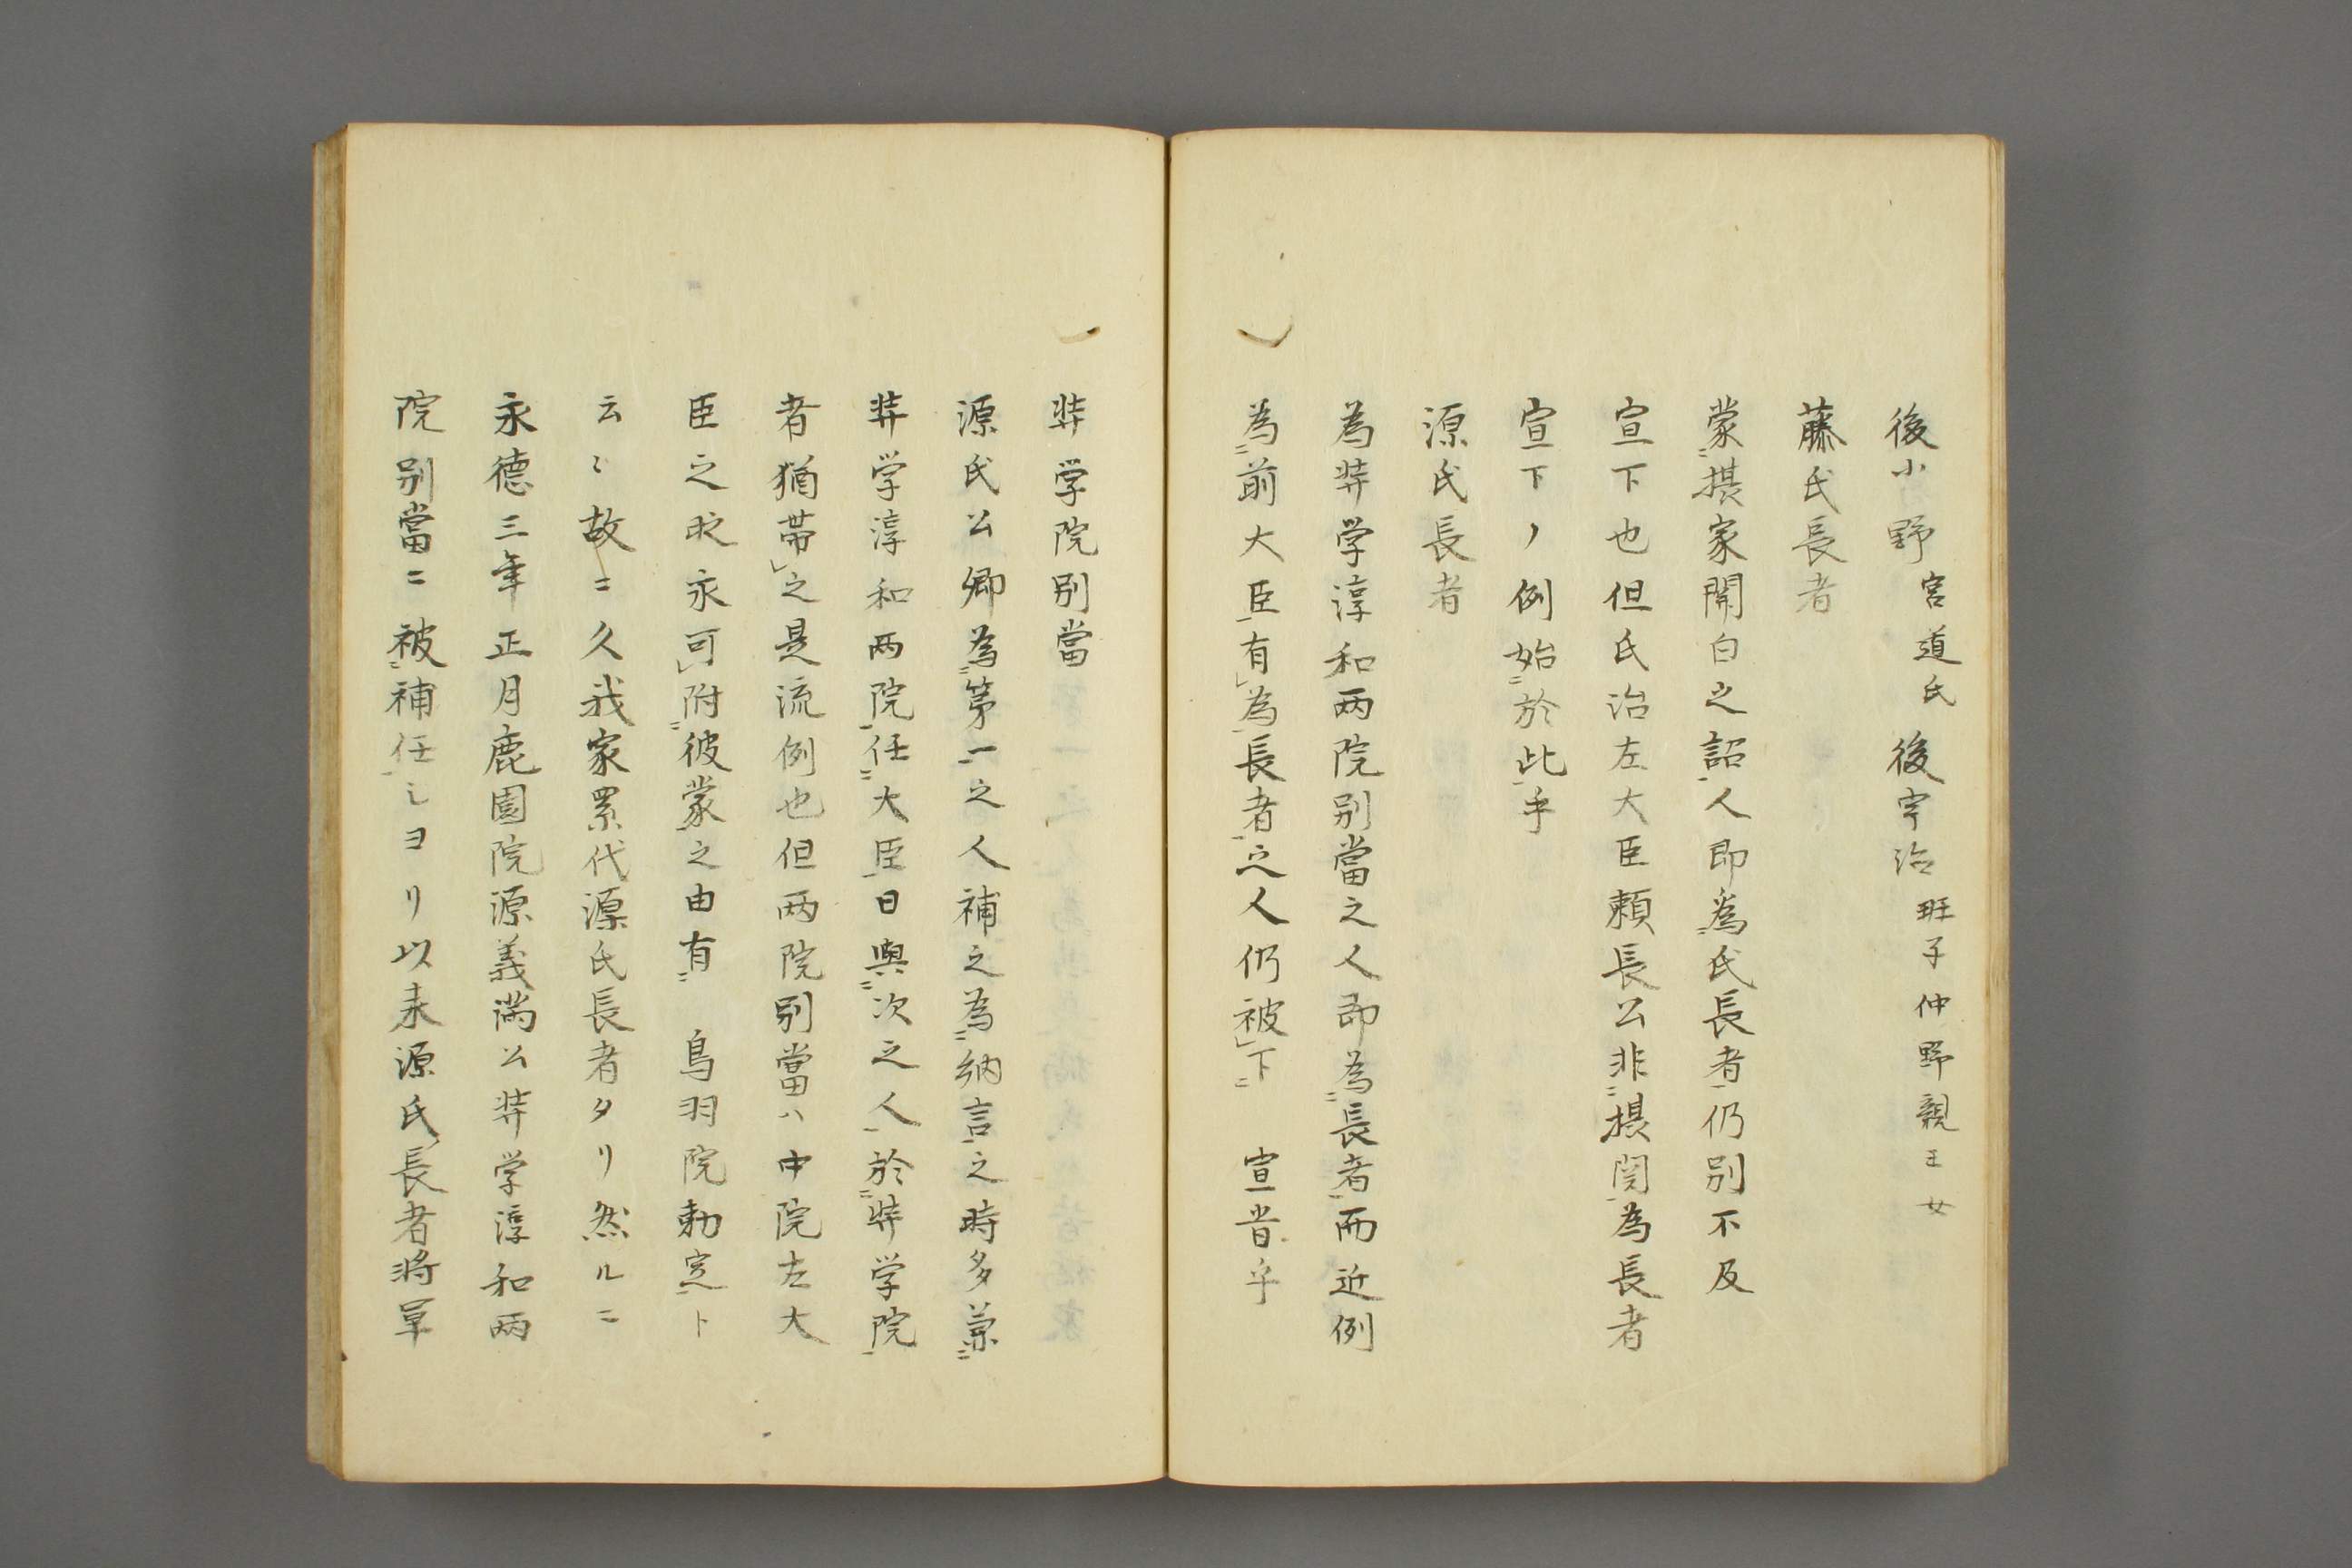 後小野宮道氏 後宇治班子仲野親王女
藤氏長者
蒙摂家関白之詔人即為氏長者仍別不及
宣下也但氏治左大臣頼長公非摂関為長者
宣下ノ例始於此乎
源氏長者
為弉学淳和両院別當之人即為長者而近例
為前大臣有為長者之人仍被下 宣旨乎
弉学院別當
源氏公卿為第一之人補之為納言之時多兼
弉学淳和両院任大臣日與次之人於弉学院
者猶帯之是流例也但両院別當ハ中院左大
臣之時永可附彼蒙之由有 鳥羽院勅定ト
云〻故ニ久我家累代源氏長者タリ然ルニ
永徳三年正月鹿園院源義満公弉学淳和両
院別當ニ被補任シヨリ以来源氏長者将軍